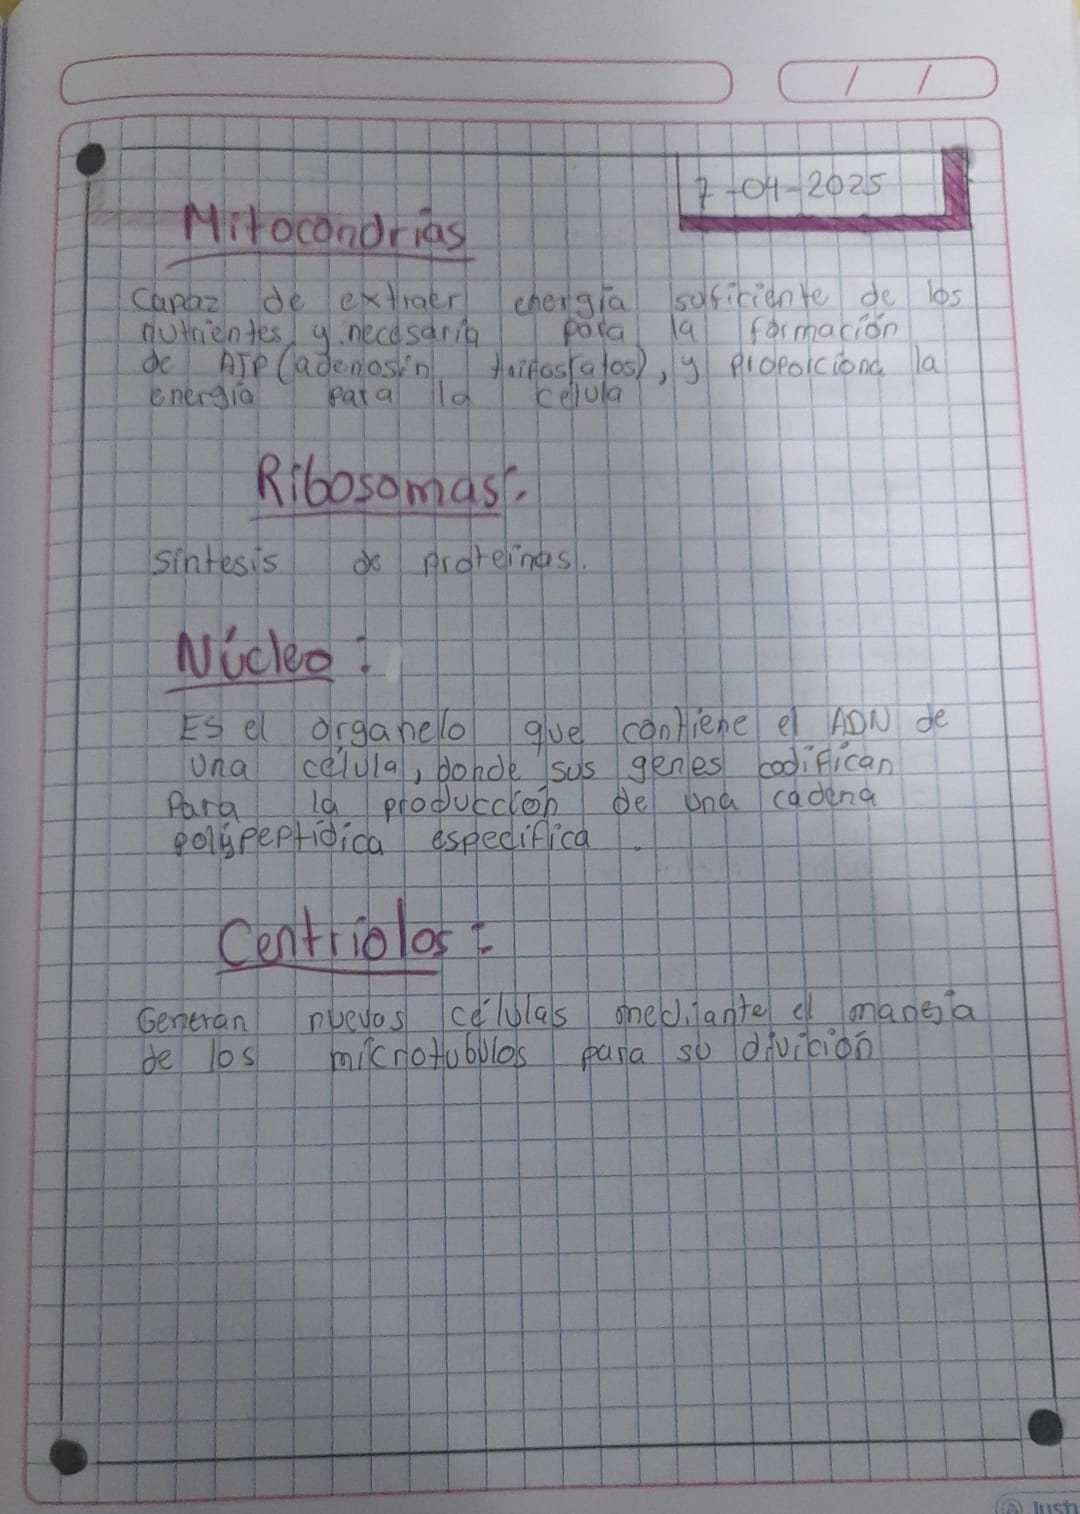 7-04-2025
Mitocondrias
Capaz de extraer energía suficiente de los
nutrientes y necesaria para la formación
de ATP (adenosin trifosfatos), y proporciona la
energía para la celula
Ribosomas:
síntesis de proteínas.
Núcleo:
Es el organelo que contiene el ADN de
una célula, donde sus genes codifican
para la producción de una cadena
polipeptídica especifica.
Centriolos:
Generan nuevos células mediante el maneja
de los microtubulos para su divición
Justu